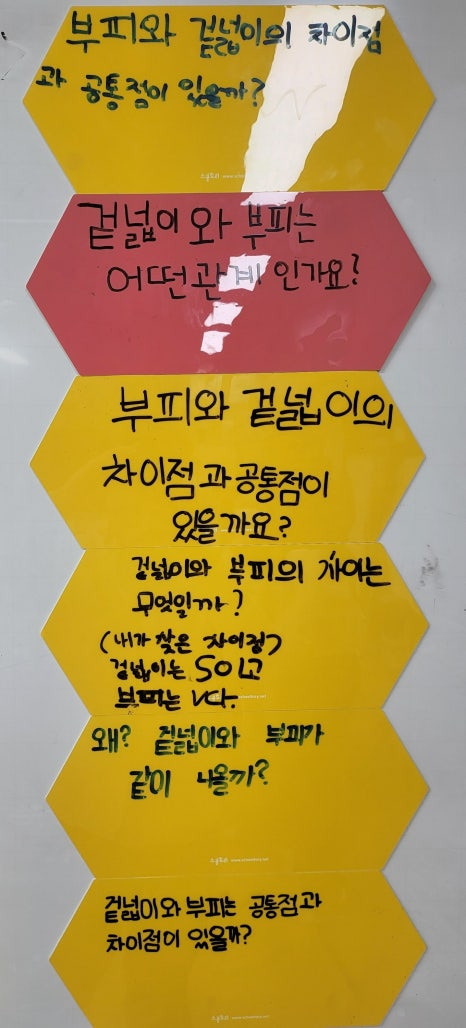 부피와 겉넓이의 차이점
과 공통점이 있을까?
스쿨토리 www.schooltory.net
겉넓이와 부피는
어떤관계인가요?
부피와 겉넓이의
차이점과공통점이
있을까요?
겉넓이와 부피의 차이는
무엇일까?
(내가 찾은 차이점)
겉넓이는 S이고
부피는 V다.
왜? 겉넓이와 부피가
같이 나올까?
스쿨토리 www.schooltory.net
겉넓이와 부피는 공통점과
차이점이 있을까?
스쿨토리 www.schooltory.net